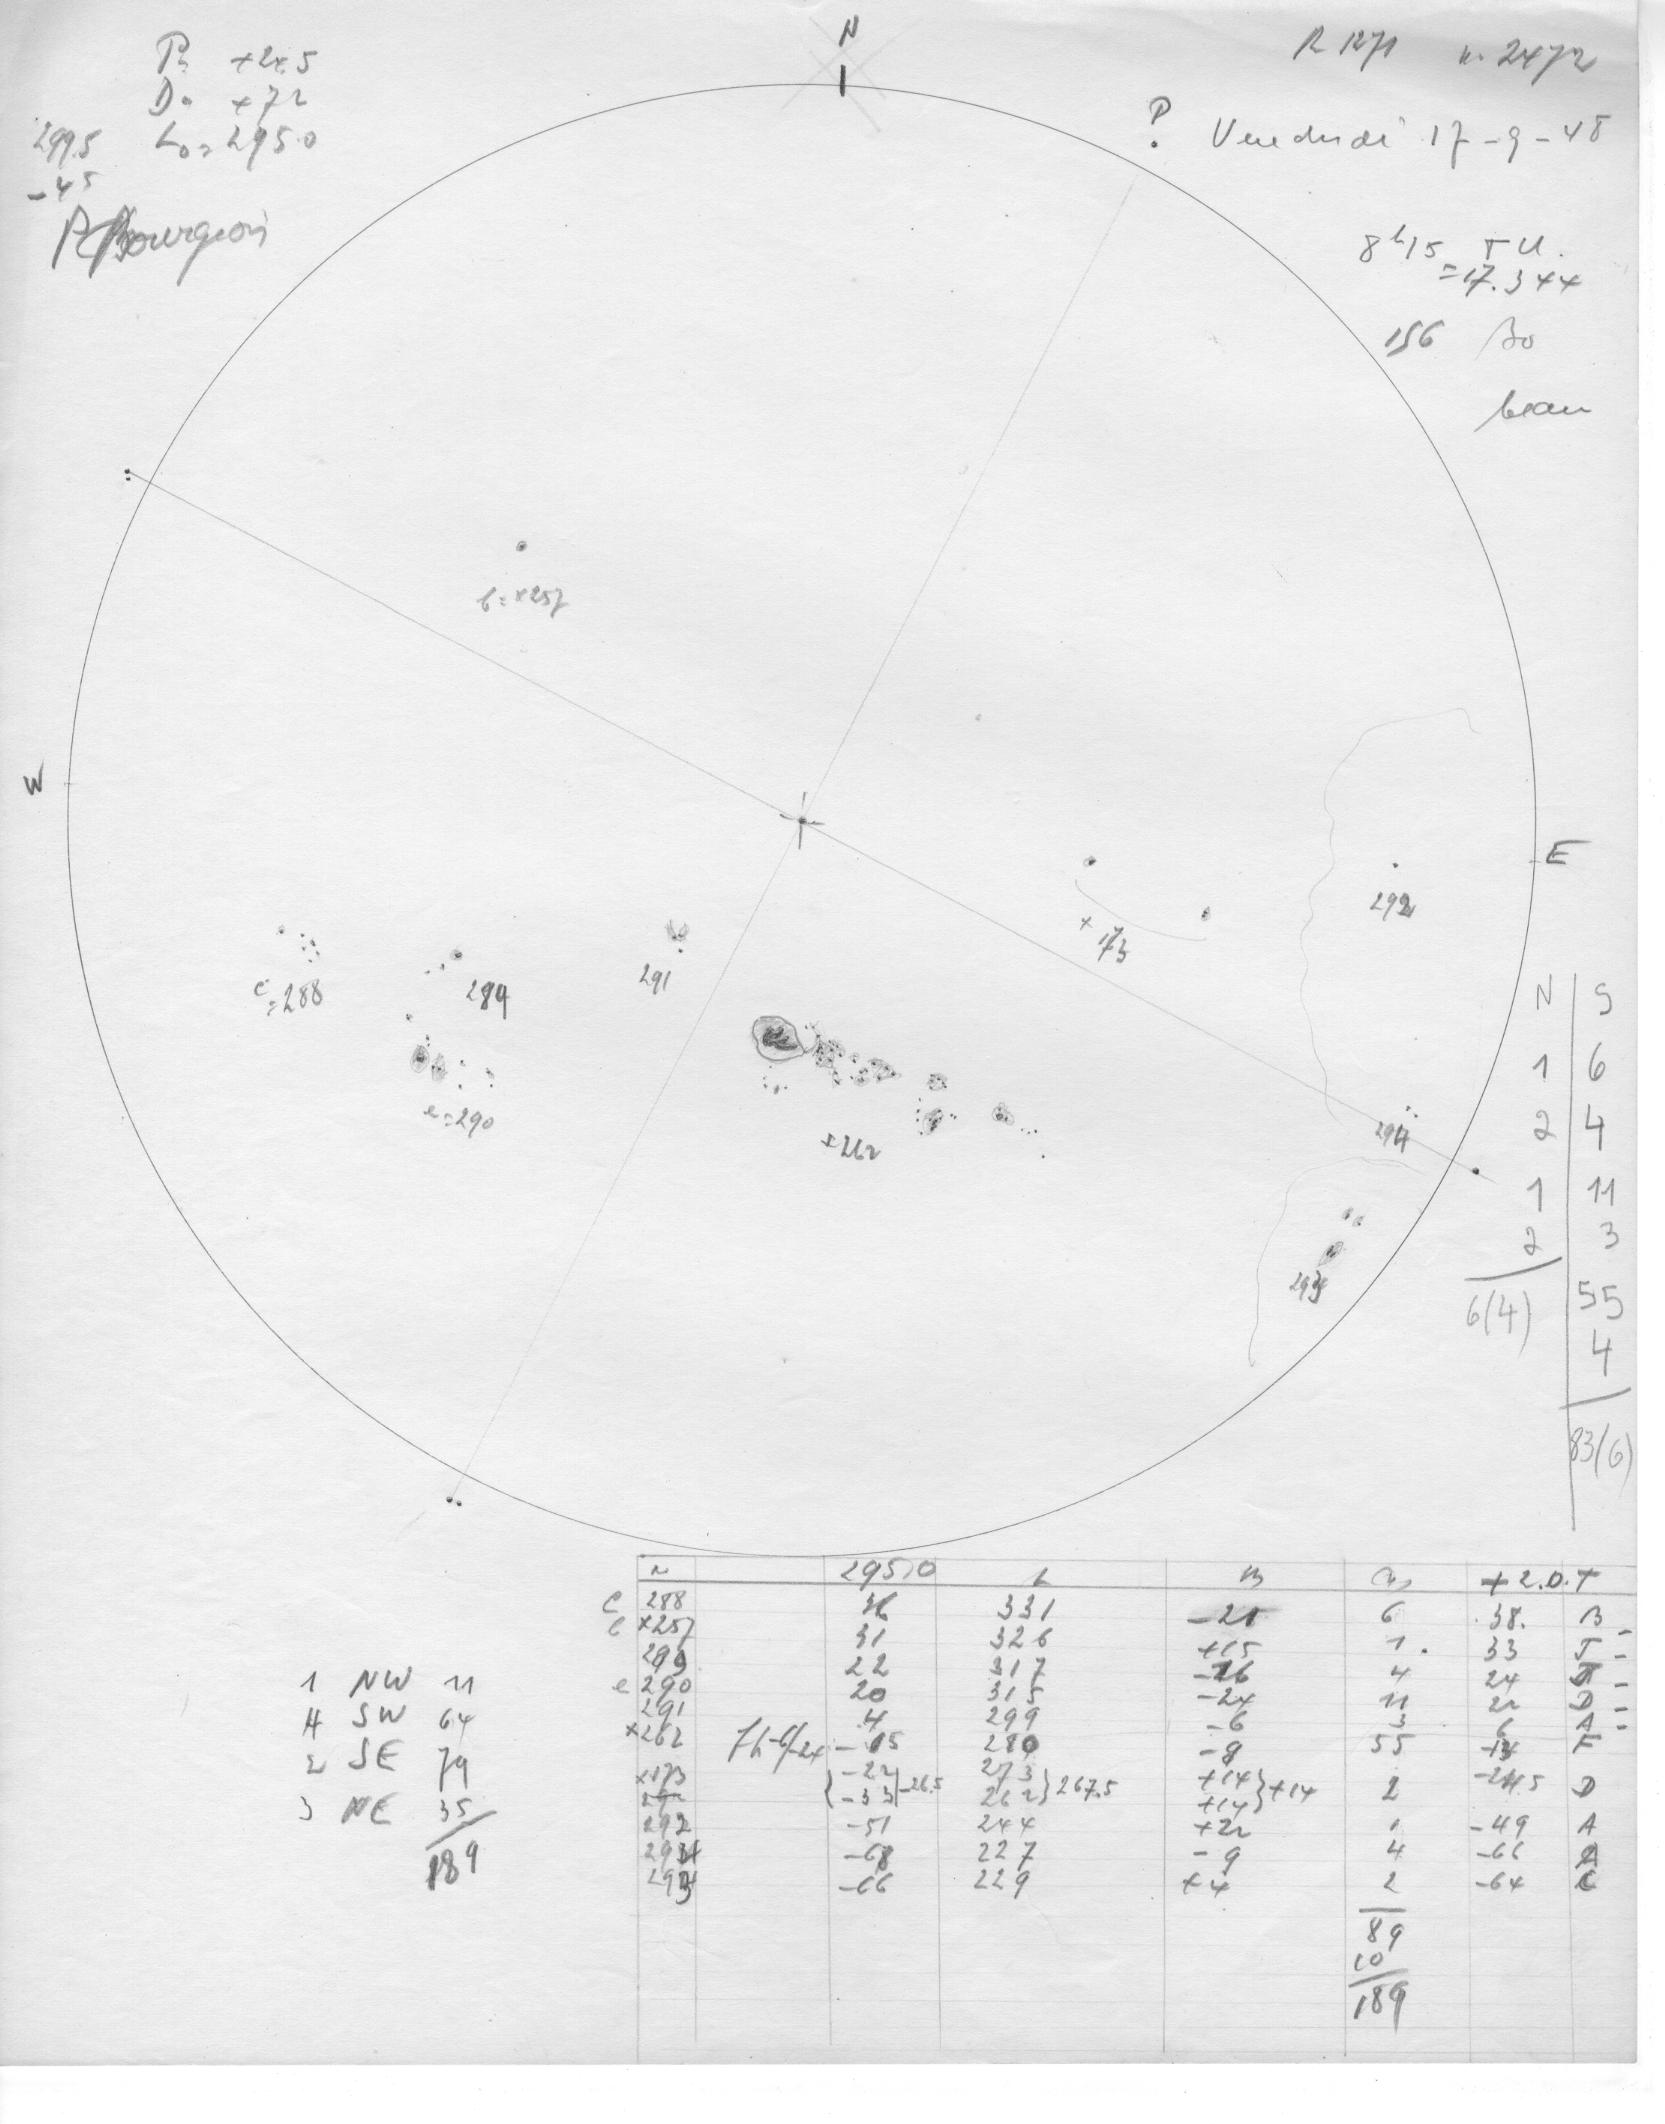 N
P. +24.5
D. +7.2
299.5 L₀= 295.0
-4.5
PBourgeois
R 1271 n. 2472
P. Vendredi 17-9-48
8h15 TU.
=17.344
156 Bo
beau
W
E
b=x257
x173
292
c=288
289
291
e=290
x262
294
293
N S
1 6
2 4
1 11
2 3
6(4) 55
4
83(6)
N 295,0 L B +2.0. T
c 288 36 331 -21 6 38. B
x257 31 326 +15 1. 33 J
289 22 317 -16 4 24
e 290 20 315 -24 11 22 D
291 4 299 -6 3 6 A
x262 -15 280 -9 55 F
x173 {-22 -26.5 273 } 267.5 +14 } +14 2 -24.5 D
-33 262 +14
292 -51 244 +22 1 -49 A
294 -68 227 -9 4 -66
293 -66 229 +4 2 -64 C
89
10
189
1 NW 11
4 SW 64
2 SE 79
3 NE 35
189